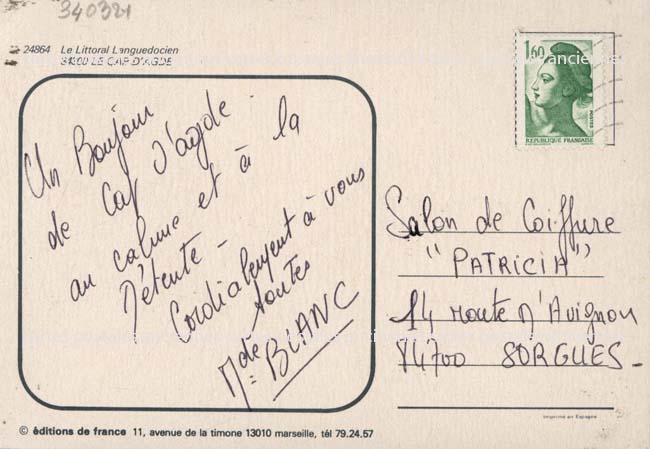 340321
24864 Le Littoral Languedocien
34300 LE CAP D'AGDE
Un Bonjour
de Cap d'agde
au calme et à la
Détente -
Cordialement à vous
toutes
Mde BLANC
1,60
POSTES
REPUBLIQUE FRANCAISE
Salon de Coiffure
"PATRICIA"
14 route d'Avignon
84700 SORGUES.
Imprimé en Espagne
© éditions de france 11, avenue de la timone 13010 marseille, tél 79.24.57